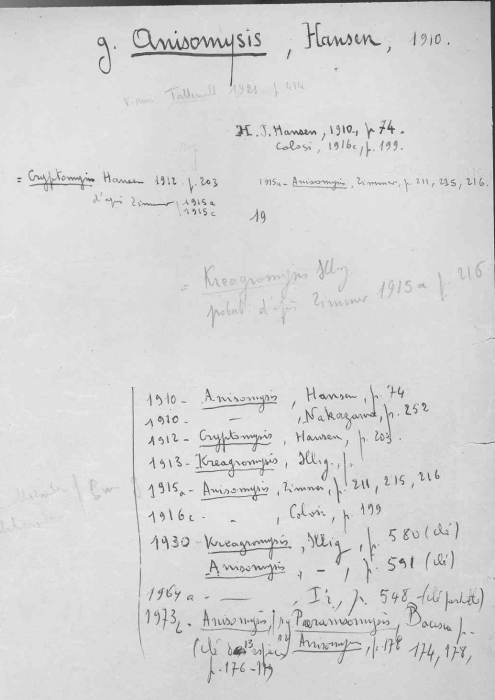 g. Anisomysis, Hansen, 1910.
Tattersall 1921 p. 414
H. J. Hansen, 1910, p 74.
Colosi, 1916c, p. 199.
= Cryptomysis Hansen 1912 p. 203
1915a - Anisomysis, Zimmer, p. 211, 215, 216.
d'après Zimmer 1915a
1915c
19
= Kreagromysis Illig
probabt d'après Zimmer 1915a p 216
1910 - Anisomysis, Hansen, p. 74
1910. - , Nakazawa, p. 252
1912 - Cryptomysis, Hansen, p. 203.
1913 - Kreagromysis, Illig, p.
1915a - Anisomysis, Zimmer, p. 211, 215, 216
1916c - " , Colosi, p. 199
1930 - Kreagromysis, Illig, p. 580 (clé)
Anisomysis, - , p. 591 (clé)
1964a - — , Ii, p. 548 - (clé
1973b - Anisomysis, Paranisomysis, Bacescu p.
(clé des 13 espèces) Anisomysis, p. 178 174, 178,
p. 176-179